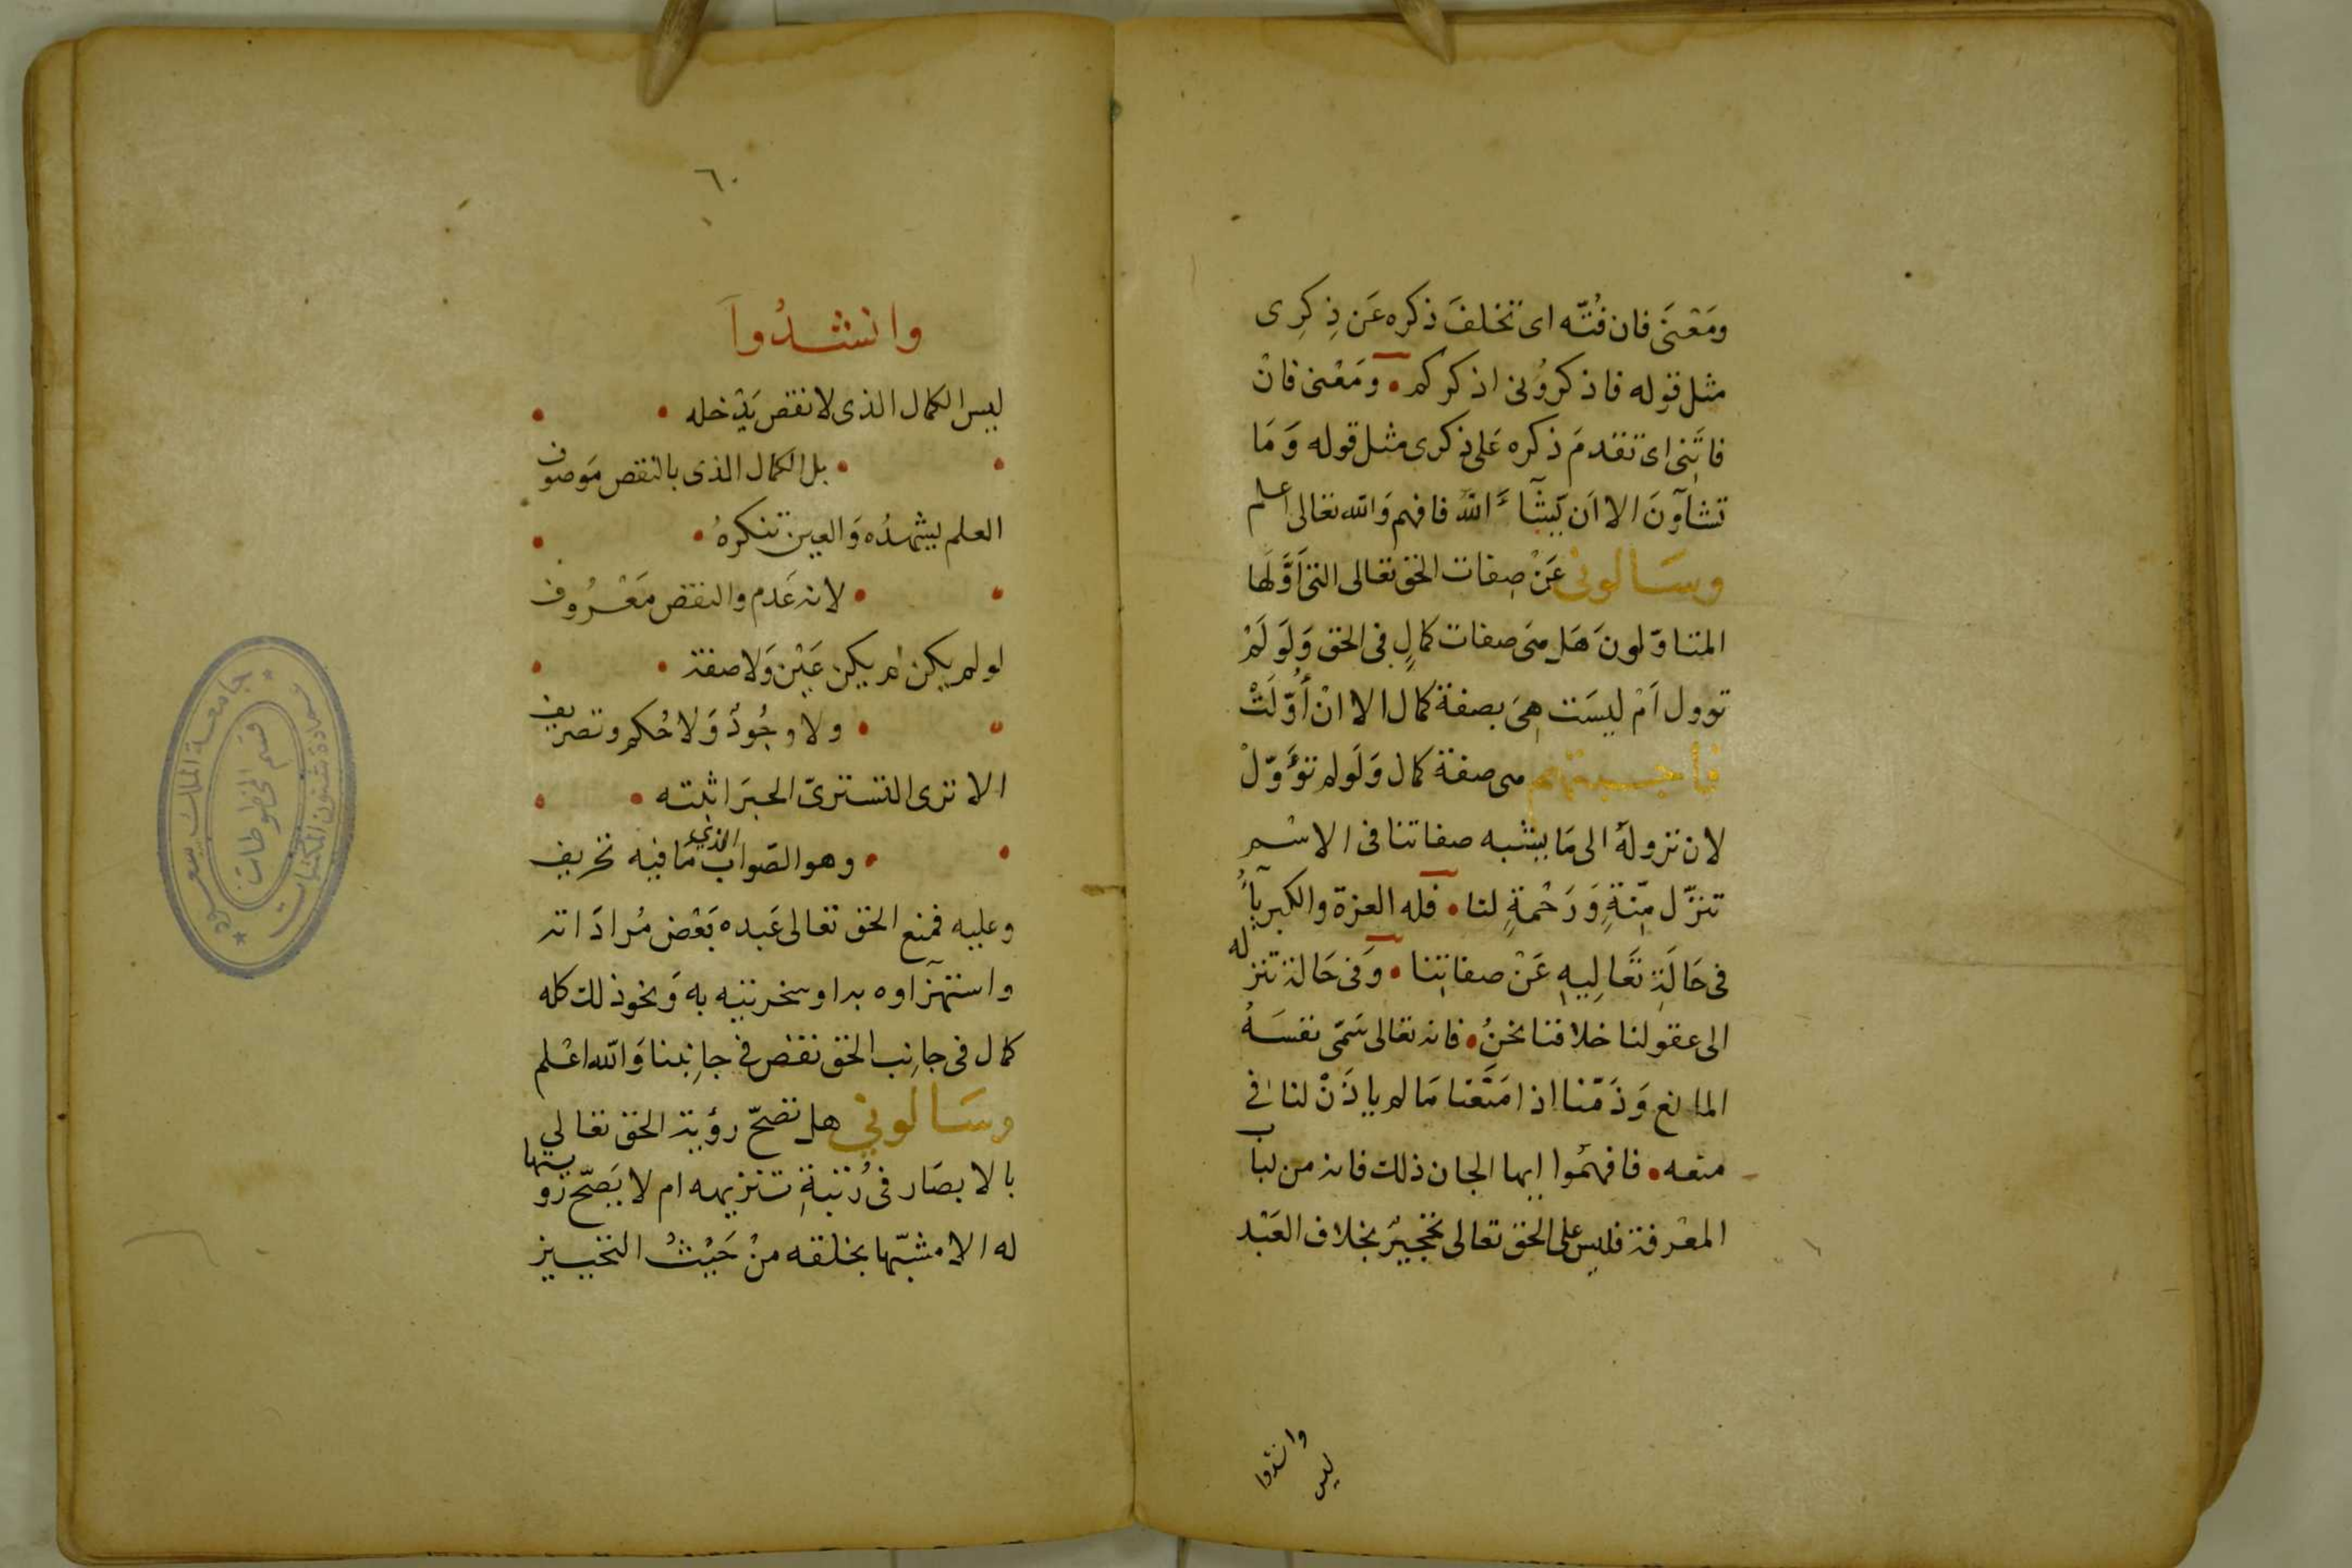 ومَعْنَى فان فُتّه اى تخلفَ ذكره عَن ذِكرِى
مثل قوله فاذكرُونى اذكركم • ومَعْنى فانْ
فاتَنِى اى تقدمَ ذكره عَلى ذكرى مثل قوله وَمَا
تشآوَنَ الا اَن يَّشآءَ اللّٰه فافهم وَالله تعالى اعلم
وسَالونى عَنْ صِفات الحق تعَالى التى اَوَّلهَا
المتاوّلونَ هَل هىَ صفات كمالٍ فى الحق وَلَو لَمْ
توول اَمْ ليسَت هِىَ بصفة كمال الا انْ أُوّلَتْ
فاجبتهم هى صفة كمال وَلَو لم تؤَوّلْ
لان نزوله الى مَا يشبه صفاتنا فى الاسْم
تنزّل مِنّةٍ وَرَحْمةٍ لنا • فله العزة والكبريآءُ
فى حَالَة تَعَالِيهِ عَنْ صفاتِنا • وَفى حَالة تنزله
الى عقولنا خلافنا نحنُ • فانه تعالى سَمّى نفسَهُ
المانع وَذَمّنا اذا مَنَعْنا مَا لم ياذَنْ لنا فى
منعه • فافهمُوا ايها الجان ذلك فانه من لباب
المعْرفة فليس على الحق تعالى تحْجيرٌ بخلاف العَبْد
وانشدوا
ليس
٦٠
وانشدُوا
ليس الكمال الذى لا نقص يَدْخله •
• بل الكمال الذى بالنقص مَوصوف
العلم يشهدُه وَالعين تنكرهُ •
• لانه عَدم والنقص مَعْرُوف
لو لم يكن لم يكن عَيْن وَلا صفة •
• ولا وجُودٌ وَلا حُكم وتصريف
الا ترى التسترىّ الحبرَ اثبته •
• وهو الصّواب الذي مَا فيه تحريف
وعليه فمنع الحق تعالى عَبده بَعْض مُرادَاته
واستهزَاوه به او سخريته به وَنحو ذلك كله
كمال فى جانِب الحق نقص فى جانِبنا وَالله اعْلم
وسَالونى هل تصحّ رؤية الحق تعالى
بالابصَار فى رُتبةِ تنزيهه ام لا يَصحّ رويتها
له الا مشبّها بخلقه منْ حَيْثُ التحييز
جامعة الملك سعود
عمادة شئون المكتبات
قسم المخطوطات